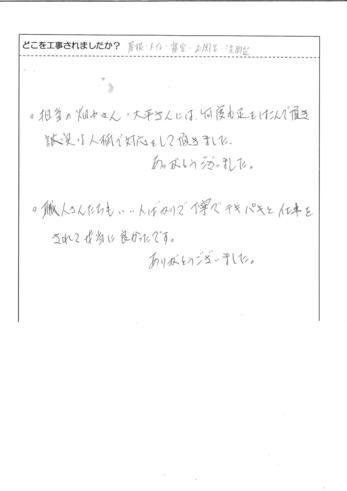 どこを工事されましたか? 屋根・トイレ・寝室・お風呂・洗面台
○担当の畑中さん・大平さんには、何度も足をはこんで頂き
人柄で対応をして頂きました。
ありがとうございました。
○職人さんたちも、いい人ばかりで丁寧でテキパキと仕事を
されて本当に良かったです。
ありがとうございました。